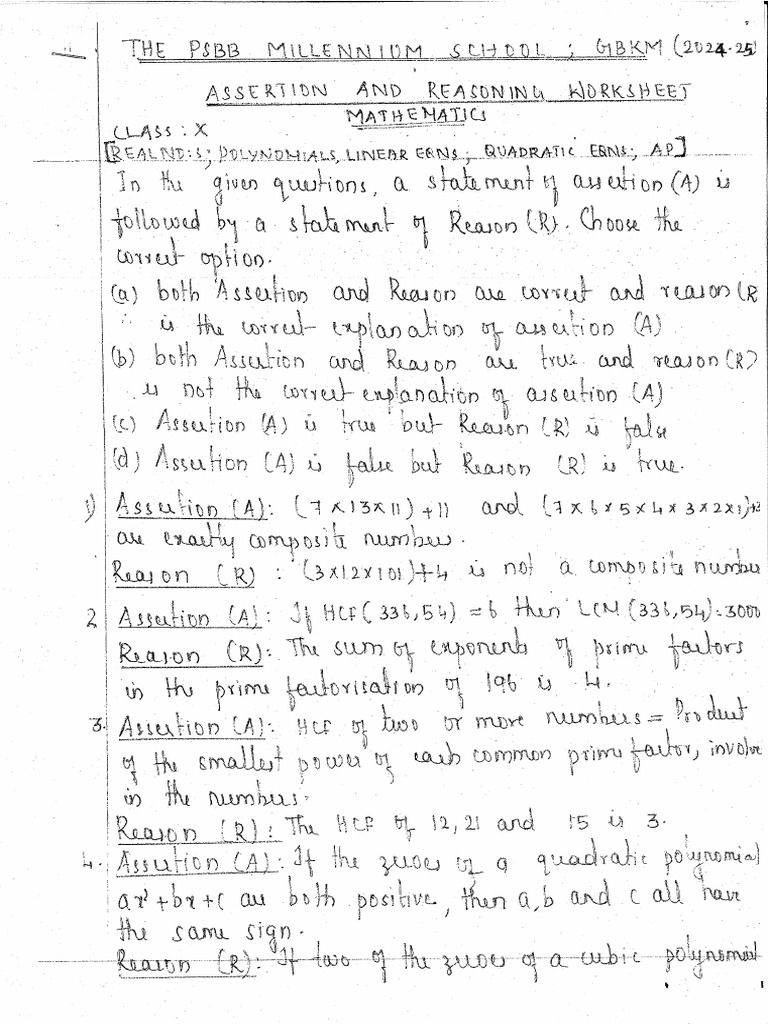 THE PSBB MILLENNIUM SCHOOL ; GBKM (2024-25)
ASSERTION AND REASONING WORKSHEET
MATHEMATICS
CLASS : X
[REAL NO:S; POLYNOMIALS, LINEAR EQNS; QUADRATIC EQNS; AP]
In the given questions, a statement of assertion (A) is
followed by a statement of Reason (R). Choose the
correct option.
(a) both Assertion and Reason are correct and reason (R
is the correct explanation of assertion (A)
(b) both Assertion and Reason are true and reason (R)
is not the correct explanation of assertion (A)
(c) Assertion (A) is true but Reason (R) is false
(d) Assertion (A) is false but Reason (R) is true.
1) Assertion (A): (7×13×11)+11 and (7×6×5×4×3×2×1)+3
are exactly composite numbers.
Reason (R) : (3×12×101)+4 is not a composite number
2 Assertion (A): If HCF(336,54) = 6 then LCM (336,54)=3000
Reason (R): The sum of exponents of prime factors
in the prime factorisation of 196 is 4.
3. Assertion (A): HCF of two or more numbers = Product
of the smallest power of each common prime factor, involve
in the numbers.
Reason (R): The HCF of 12, 21 and 15 is 3.
4. Assertion (A): If the zeroes of a quadratic polynomial
ax²+bx+c are both positive, then a, b and c all have
the same sign.
Reason (R): If two of the zeroes of a cubic polynomial